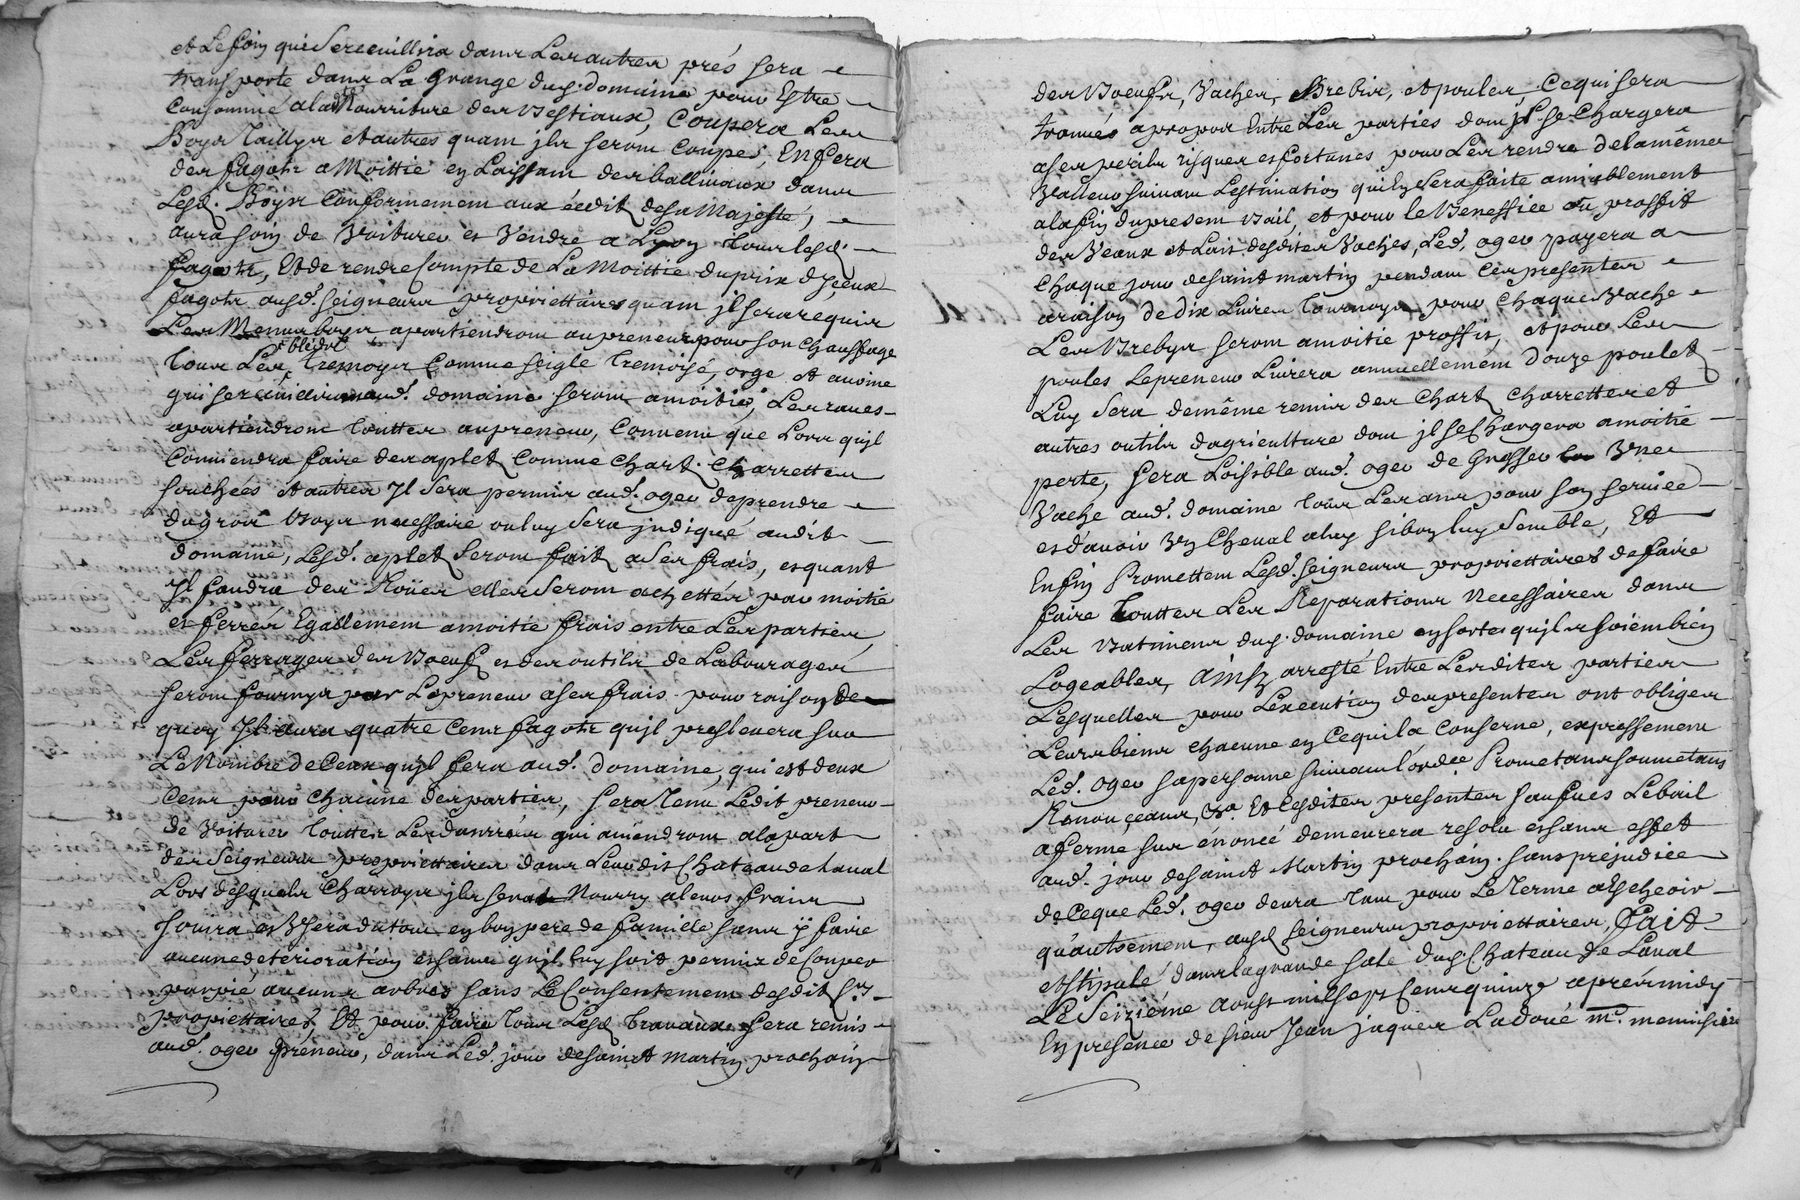 et Le foin qui Sereceuillira dans Les autres prés sera
transporté dans La grange dud. domaine pour Estre
Consommé a lad.te Nourriture des Bestiaux, Coupera Les
Boys Taillys et autres quant jls seront Coupés, En fera
des fagots a Moittié en Laissant des balliveaux dans
Lesd. Boys Conformement aux écdit de Sa Majesté,
aura soin de Voiturer et Vendre a Lyon tous lesd.
fagots, Et de rendre Compte de La Moittié du prix d'jceux
fagots ausd. Seigneurs propriettaires quant jl sera requis
Les Menus boys apartiendront au preneur pour son Chauffage
Tous Les bleds Tremoys Comme seigle Tremoisé, orge et avoine
qui Sereceuilliront aud. domaine seront a moitié, Les raves
apartiendront touttes au preneur, Convenu que Lors qu'jl
Conviendra faire des aplets Comme Chart. Charrettes
souchées et autres Jl Sera permis aud. oger de prendre
du gros boys necessaire ou luy Sera jndiqué audit
domaine, Lesd. aplets Seront faits a Ses frais, et quant
Jl faudra des Roües elles Seront achettées par moitié
et ferrés Egallement a moitié frais entre Les parties
Les ferrages des Boeufs et des outils de Labourages
seront fournys par Le preneur a ses frais pour raison de
quoy Jl aura quatre Cens fagots qu'jl preslevera sur
Le Nombre de Ceux qu'jl fera aud. domaine, qui est deux
Cens pour chacune des parties, sera Tenu Ledit preneur
de Voiturer touttes Les danrrées qui aviendront a la part
des Seigneurs propriettaires dans Leurdit Chateau de Laval
Lors desquels Charroys jls seront Nourry a leurs frais
Jouira et Usera du tout en bon pere de famille sans ÿ faire
aucune deterioration et sans qu'jl luy soit permis de Couper
par pié aucuns arbres sans Le Consentement desdit Srs
propriettaires, Et pour faire tous Lesd. travaux Sera remis
aud. oger preneur, dans Led. jour de Sainct Martin prochain
des Boeufs, Vaches, Brebis, et poules Ce qui sera
trouvés a propos Entre Les parties dont jl se Chargera
a ses perils risques et fortunes pour Les rendre de la même
Valleur suivant L'estimation qui En Sera faite amiablement
a la fin du present Bail, et pour le Beneffice ou proffit
des Veaux et Lait desdites Vaches, Led. oger payera a
Chaque jour de Saint martin pendant Ces presentes
a raison de dix Livres Tournoys pour Chaque Vache
Les Brebys seront a moitié proffit, et pour Les
poules Le preneur Livrera annuellement douze poulets
Luy Sera de même remis des Chart Charrettes et
autres outils d'agriculture dont jl se Chargera a moitié
perte, sera Loisible aud. oger de Vne
Vache aud. domaine tous Les ans pour son service
et d'avoir Vn Cheval a luy si bon luy Semble, Et
Enfin Promettent Lesd. Seigneurs propriettaires de faire
faire Touttes Les Reparations Necessaires dans
Les Batimens dud. domaine en sortes qu'jls soient bien
Logeables, Ainsy arresté Entre Lesdites parties
Lesquelles pour L'execution des presentes ont obligés
Leurs biens chacune en Ce qui la Conserne, expressement
Led. oger sa personne suivant l'ordce Prometans soumetans
Renonçeans, &a. Et Lesdites presentes faufués Le bail
a ferme sus énoncé demeurera resolu et sans effet
aud. jour de Sainct Martin prochain. sans prejudice
de Ce que Led. oger devra Tant pour Le Terme a Escheoir
qu'autrement, ausd. Seigneurs propriettaires, Fait
et Stipulé dans la grande Sale dud. Chateau de Laval
Le Seiziéme aoust mil sept Cens quinze aprés midy
En presence de Sieur Jean jaques Ladoué me. menuisier